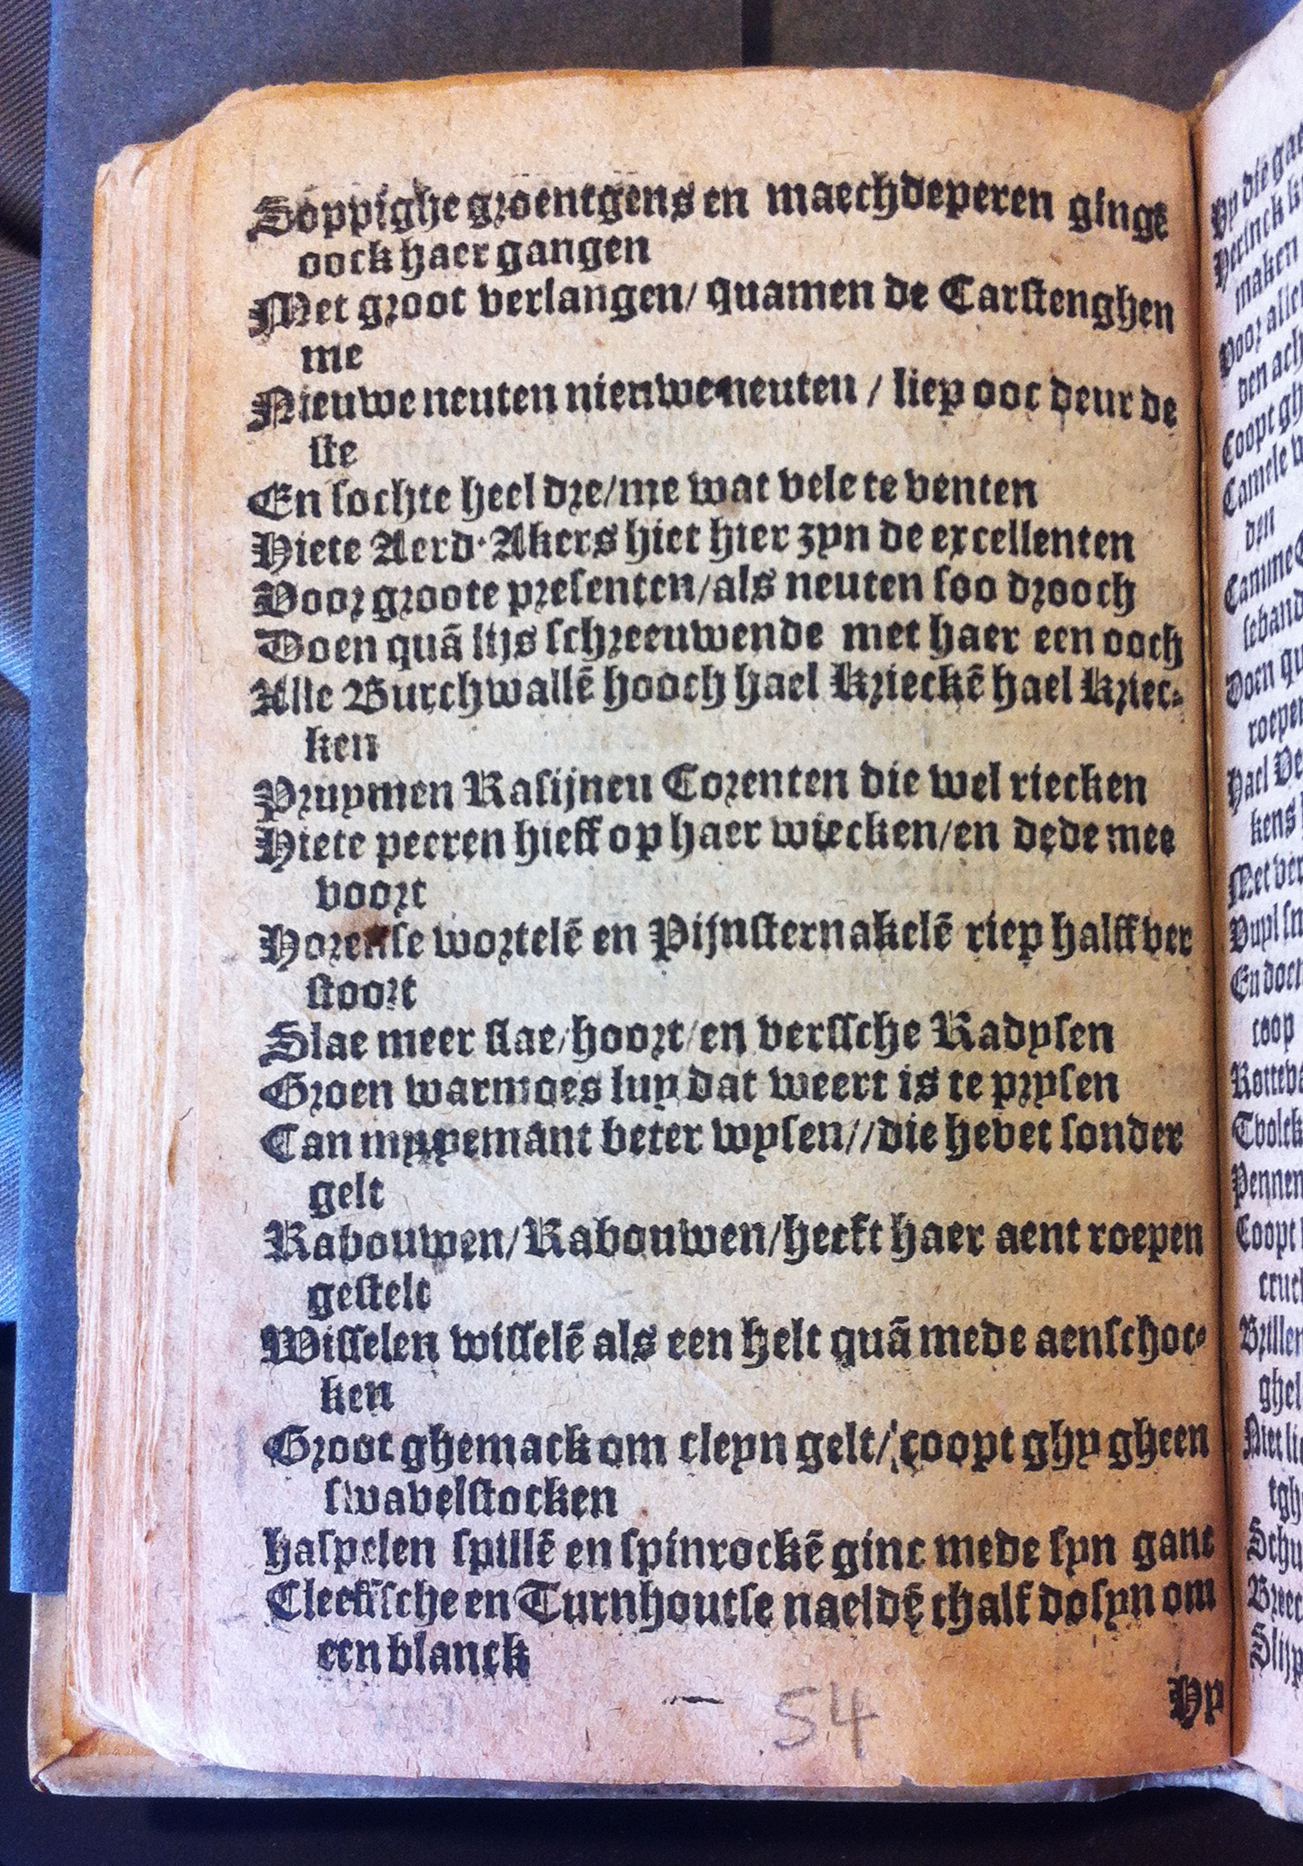 Soppighe groentgens en maechdeperen gingē
oock haer gangen
Met groot verlangen/ quamen de Carstenghen
me
Nieuwe neuten nieuwe neuten / liep ooc deur de
ste
En sochte heel dre/me wat vele te venten
Hiete Aerd-Akers hiet hier zyn de excellenten
Voor groote presenten/als neuten soo drooch
Doen quā lijs schreeuwende met haer een ooch
Alle Burchwallē hooch hael Krieckē hael Kriec-
ken
Pruymen Rasijnen Corenten die wel riecken
Hiete peeren hieff op haer wiecken/en dede mee
voort
Horense wortelē en Pijnsternakelē riep halff ver
stoort
Slae meer slae/hoort/en verssche Radysen
Groen warmoes luy dat weert is te prysen
Can my yemant beter wysen//die hevet sonder
gelt
Rabouwen/Rabouwen/heeft haer aent roepen
gestelt
Wisselen wisselē als een helt quā mede aenschoc-
ken
Groot ghemack om cleyn gelt/ coopt ghy gheen
swavelstocken
haspelen spillē en spinrockē ginc mede syn ganc
Cleefsche en Turnhoutse naeldē thalf dosyn om
een blanck
54
Hp
Hy die
maken
Voor
Coopt
Camele
den
Doen
Hael
kens
Met
En
coop
Pennen
Coopt
Niet